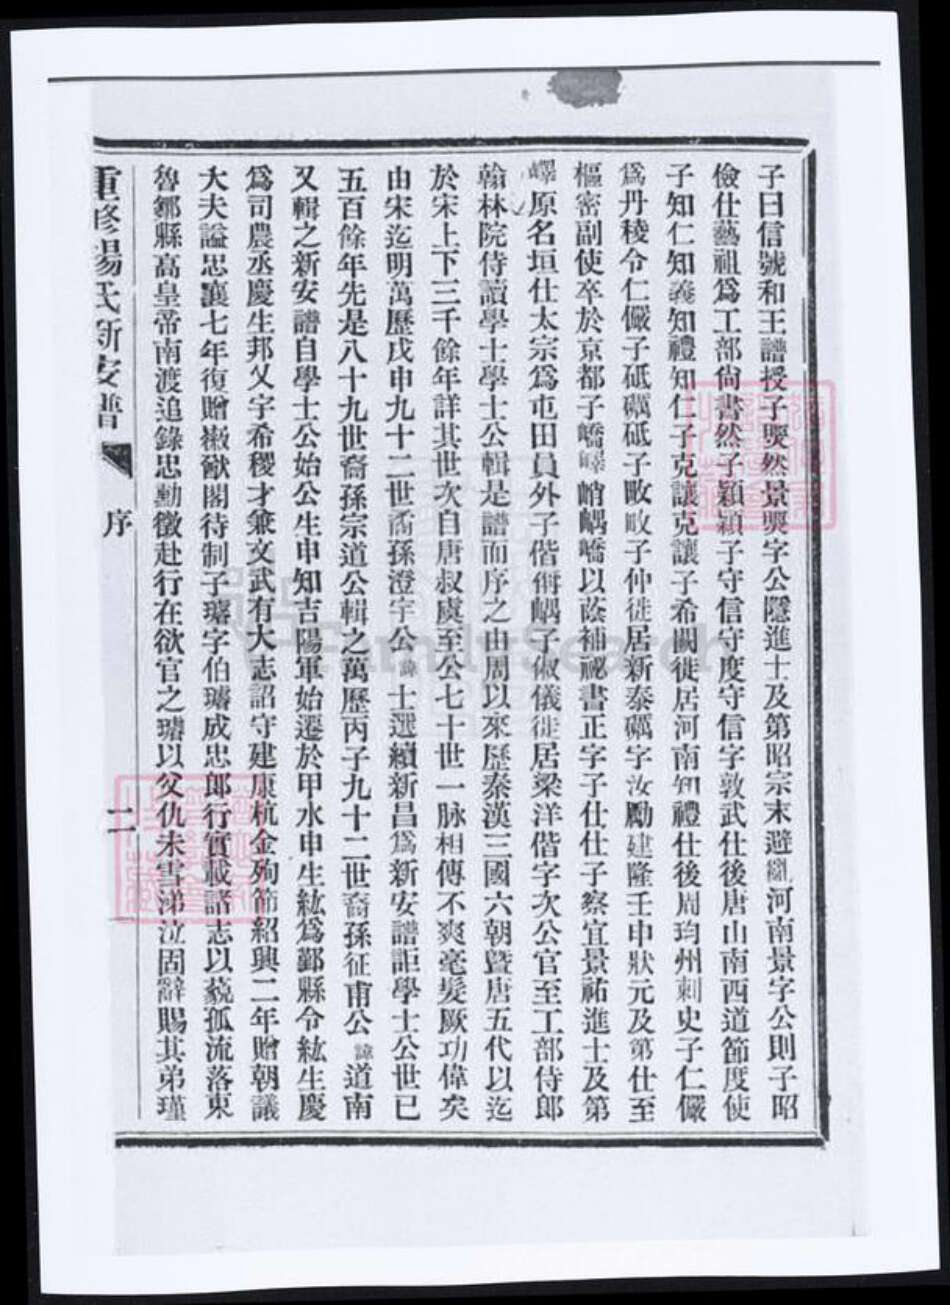 子曰信號和王譜授子㬇然景㬇字公隱進士及第昭宗末避亂河南景字公則子昭
儉仕藝祖爲工部尙書然子穎穎子守信守度守信字敦武仕後唐山南西道節度使
子知仁知義知禮知仁子克讓克讓子希闕徙居河南知禮仕後周均州刺史子仁儼
爲丹稜令仁儼子砥礪砥子畋畋子仲徙居新泰礪字汝勵建隆壬申狀元及第仕至
樞密副使卒於京都子嶠嶧峭嵎嶠以蔭補祕書正字子仕仕子察宜景祐進士及第
嶧原名垣仕太宗爲屯田員外子偕衡嵎子俶儀徙居梁洋偕字次公官至工部侍郎
翰林院侍讀學士學士公輯是譜而序之由周以來歷秦漢三國六朝曁唐五代以迄
於宋上下三千餘年詳其世次自唐叔虞至公七十世一脉相傳不爽毫髮厥功偉矣
由宋迄明萬歷戊申九十二世裔孫澄宇公諱士選續新昌爲新安譜詎學士公世已
五百餘年先是八十九世裔孫宗道公輯之萬歷丙子九十二世裔孫征甫公諱道南
又輯之新安譜自學士公始公生申知吉陽軍始遷於甲水申生紘爲鄞縣令紘生慶
爲司農丞慶生邦乂字希稷才兼文武有大志詔守建康杭金殉節紹興二年贈朝議
大夫諡忠襄七年復贈徽猷閣待制子璿字伯璿成忠郎行實載諸志以藐孤流落東
魯鄒縣高皇帝南渡追錄忠勳徵赴行在欲官之璿以父仇未雪涕泣固辭賜其弟瑾
重修楊氏新安譜 序 二
FamilySearch